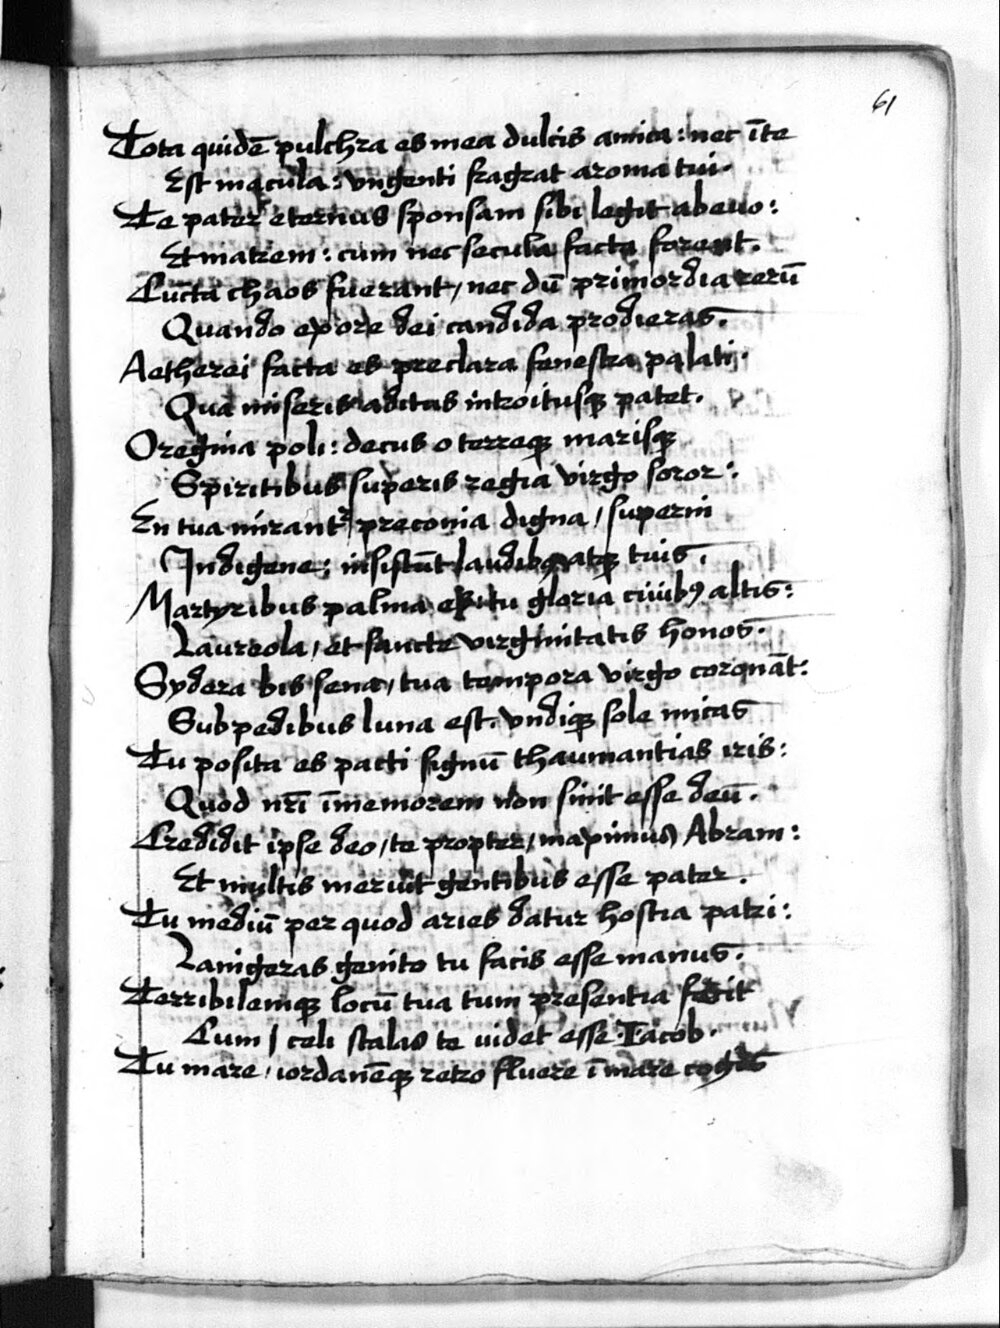 61
Tota quidē pulchra es mea dulcis amica: nec īte
Est macula: vngenti fragrat aroma tui.
Te pater eternus sponsam sibi legit ab euo:
Et matrem: cum nec secula facta forent.
Cūcta chaos fuerant, nec dū primordia rerū
Quando ex ore dei candida prodieras.
Aetherei facta es preclara fenestra palati.
Qua miseris aditus introitusq; patet.
O regina poli: decus o terreq; marisq;
Spiritibus superis regia virgo soror:
En tua mirantr preconia digna, superni
Indigene: insistūt laudibq atq; tuis.
Martyribus palma es: tu gloria ciuibq altis:
Laureola, et sancte virginitatis honos.
Sydera bis sena, tua tempora virgo coronāt:
Sub pedibus luna est. vndiq; sole micas
Tu posita es pacti signū thaumantias iris:
Quod nrī īmemorem non sinit esse deū.
Credidit ipse deo, te propter, maximus Abram:
Et multis meruit gentibus esse pater.
Tu mediū per quod aries datur hostia patri:
Lanigeras genito tu facis esse manus.
Terribilemq; locū tua tum presentia fecit
Cum, celi scalas te uidet esse Iacob.
Tu mare, iordanēq; retro fluere ī mare cogis